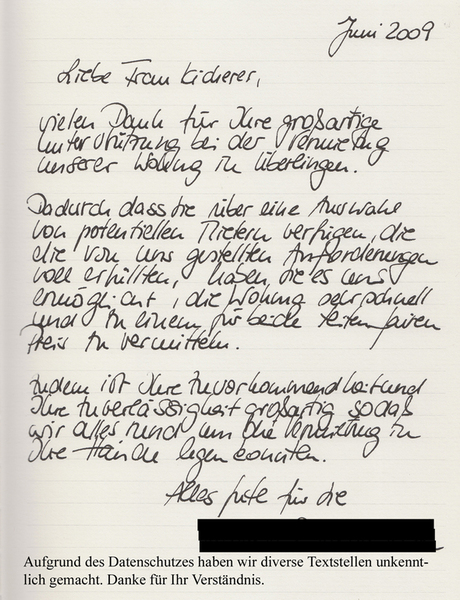 Juni 2009
Liebe Frau Kicherer,
vielen Dank für Ihre großartige
Unterstützung bei der Vermietung
unserer Wohnung in Überlingen.
Dadurch dass Sie über eine Auswahl
von potentiellen Mietern verfügen, die
die von uns gestellten Anforderungen
voll erfüllten, haben Sie es uns
ermöglicht, die Wohnung sehr schnell
und zu einem für beide Seiten fairen
Preis zu vermitteln.
Zudem ist Ihre Zuvorkommendheit und
Ihre Zuverlässigkeit großartig sodaß
wir alles rund um die Vermietung in
Ihre Hände legen konnten.
Alles gute für die
Aufgrund des Datenschutzes haben wir diverse Textstellen unkennt-
lich gemacht. Danke für Ihr Verständnis.